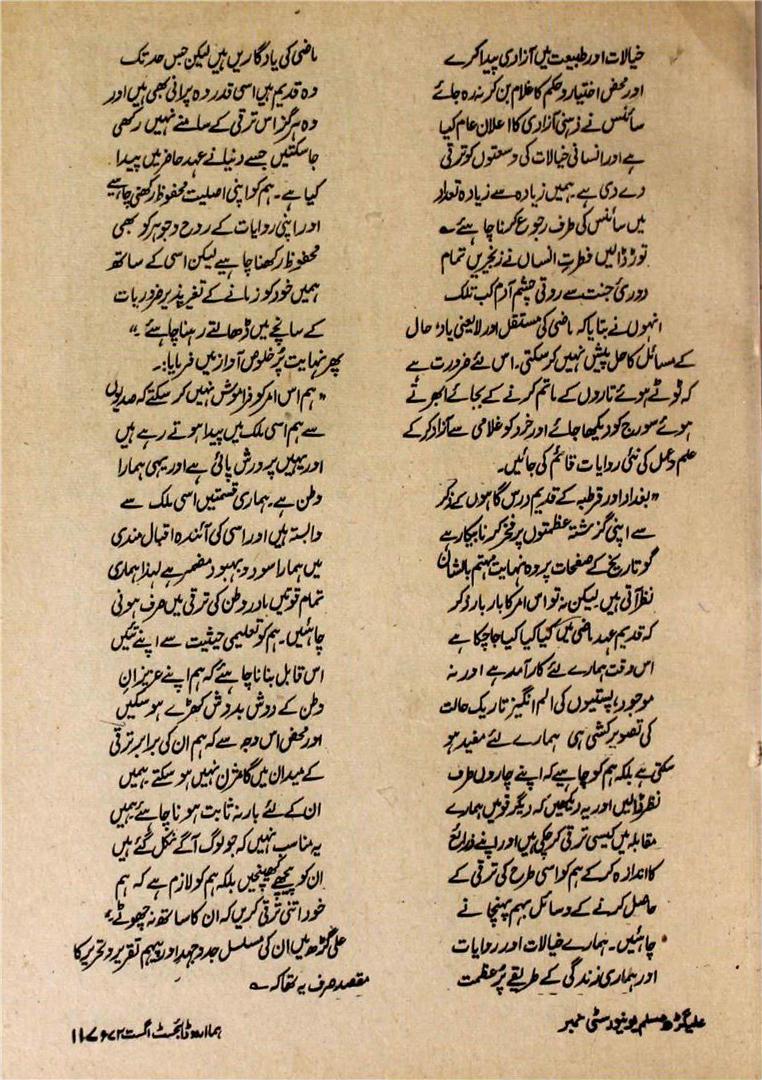 خیالات اور طبیعت میں آزادی پیدا کرے
اور محض اختیار و حکم کا غلام بن کر نہ رہ جائے
سائنس نے ذہنی آزادی کا اعلان عام کیا
ہے اور انسانی خیالات کی وسعتوں کو ترقی
دے دی ہے۔ ہمیں زیادہ سے زیادہ تعداد
میں سائنس کی طرف رجوع کرنا چاہئے ؎
توڑ ڈالیں فطرتِ انساں نے زنجیریں تمام
دوریٔ جنت سے روتی چشم آدم کب تلک
انہوں نے بتایا کہ ماضی کی مستقل اور لایعنی یاد، حال
کے مسائل کا حل پیش نہیں کر سکتی۔ اس لئے ضرورت ہے
کہ ٹوٹے ہوئے تاروں کے ماتم کرنے کے بجائے ابھرتے
ہوئے سورج کو دیکھا جائے اور خرد کو غلامی سے آزاد کر کے
علم و عمل کی نئی روایات قائم کی جائیں۔
"بغداد اور قرطبہ کے قدیم درس گاہوں کے ذکر
سے اپنی گزشتہ عظمتوں پر فخر کرنا بیکار ہے
گو تاریخ کے صفحات پر وہ نہایت مہتم بالشان
نظر آتی ہیں۔ لیکن نہ تو اس امر کا بار بار ذکر
کہ قدیم عہد ماضی میں کیا کیا کیا جا چکا ہے
اس وقت ہمارے لئے کارآمد ہے اور نہ
موجودہ پستیوں کی الم انگیز تاریک حالت
کی تصویر کشی ہی ہمارے لئے مفید ہو
سکتی ہے بلکہ ہم کو چاہیے کہ اپنے چاروں طرف
نظر ڈالیں اور یہ دیکھیں کہ دیگر قومیں ہمارے
مقابلہ میں کیسی ترقی کر چکی ہیں اور اپنے ذرائع
کا اندازہ کر کے ہم کو اسی طرح کی ترقی کے
حاصل کرنے کے وسائل بہم پہنچانے
چاہئیں۔ ہمارے خیالات اور روایات
اور ہماری زندگی کے طریقے پر عظمت
ماضی کی یادگاریں ہیں لیکن جس حد تک
وہ قدیم ہیں اسی قدر وہ پرانی بھی ہیں اور
وہ ہرگز اس ترقی کے سامنے نہیں رکھی
جا سکتیں جسے دنیا نے عہد حاضر میں پیدا
کیا ہے۔ ہم کو اپنی اصلیت محفوظ رکھنی چاہیے
اور اپنی روایات کے روح و جوہر کو بھی
محفوظ رکھنا چاہیے لیکن اسی کے ساتھ
ہمیں خود کو زمانے کے تغیر پذیر ضروریات
کے سانچے میں ڈھالتے رہنا چاہئے۔"
پھر نہایت پُر خلوص آواز میں فرمایا:۔
"ہم اس امر کو فراموش نہیں کر سکتے کہ صدیوں
سے ہم اسی ملک میں پیدا ہوتے رہے ہیں
اور یہیں پرورش پائی ہے اور یہی ہمارا
وطن ہے۔ ہماری قسمتیں اسی ملک سے
وابستہ ہیں اور اسی کی آئندہ اقبال مندی
میں ہمارا سود و بہبود مضمر ہے لہٰذا ہماری
تمام قوتیں مادر وطن کی ترقی میں صرف ہونی
چاہئیں۔ ہم کو تعلیمی حیثیت سے اپنے تئیں
اس قابل بنانا چاہئے کہ ہم اپنے عزیزانِ
وطن کے دوش بدوش کھڑے ہو سکیں
اور محض اس وجہ سے کہ ہم ان کی برابر ترقی
کے میدان میں گامزن نہیں ہو سکتے ہمیں
ان کے لئے بار نہ ثابت ہونا چاہئے ہمیں
یہ مناسب نہیں کہ جو لوگ آگے نکل گئے ہیں
ان کو پیچھے کھینچیں بلکہ ہم کو لازم ہے کہ ہم
خود اتنی ترقی کریں کہ ان کا ساتھ نہ چھوٹے"
علی گڑھ میں ان کی مسلسل جدوجہد اور پیہم تقریر و تحریر کا
مقصد صرف یہ تھا کہ ؎
علیگڑھ مسلم یونیورسٹی نمبر
ہما اردو ڈائجسٹ اگست ۷۲ء ۱۱۷